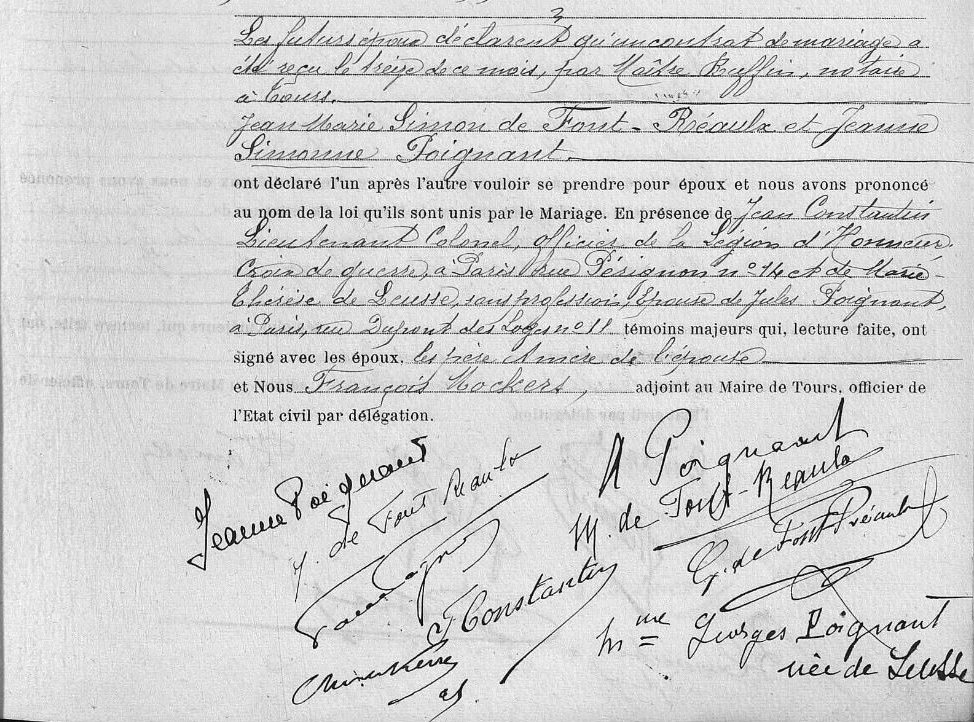 3
Les futurs époux déclarent qu'un contrat de mariage a
été reçu le treize de ce mois, par Maître Ruffin, notaire
à Tours.
Jean Marie Simon de Font-Réaulx et Jeanne
Simonne Poignant.
ont déclaré l'un après l'autre vouloir se prendre pour époux et nous avons prononcé
au nom de la loi qu'ils sont unis par le Mariage. En présence de Jean Constantin
Lieutenant Colonel, officier de la Légion d'Honneur.
Croix de guerre, à Paris, rue Pérignon n° 14 et de Marie-
Thérèse de Leusse, sans profession, Epouse de Jules Poignant,
à Paris, rue Dupont des Loges n° 11 témoins majeurs qui, lecture faite, ont
signé avec les époux, les père et mère de l'épouse
et Nous François Mockers, adjoint au Maire de Tours, officier de
l'Etat civil par délégation.
Jeanne Poignant
J. de Font Réaulx
A Poignant
M. de Font-Réaulx
G. de Font Réaulx
J Constantin
Mme Georges Poignant
née de Leusse